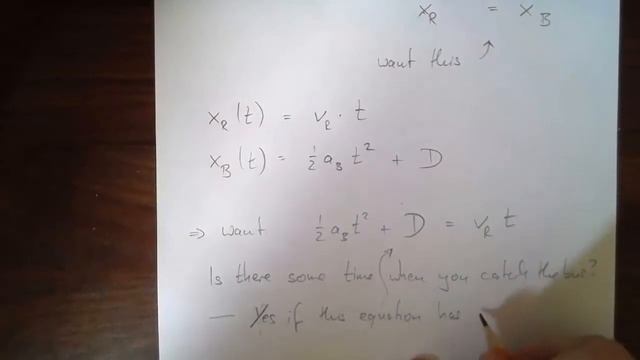 x_R = x_B
want this
x_R(t) = v_R · t
x_B(t) = ½ a_B t² + D
⇒ want ½ a_B t² + D = v_R t
Is there some time when you catch the bus?
— Yes if this equation has